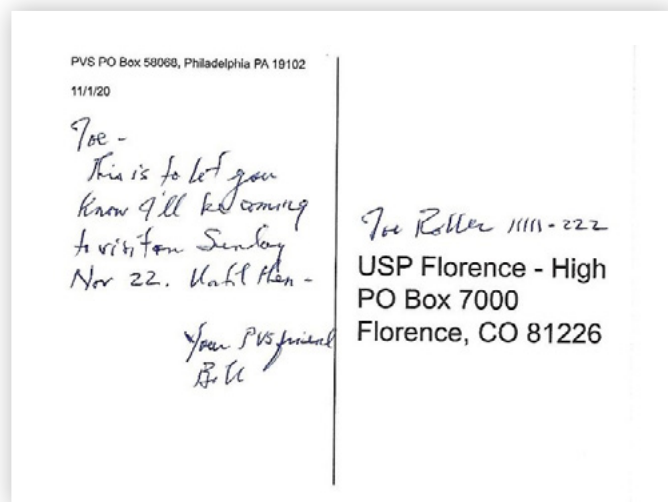 PVS PO Box 58068, Philadelphia PA 19102
11/1/20
Joe -
This is to let you
know I'll be coming
to visit on Sunday
Nov 22. Until then -
Your PVS friend
Bill
Joe Roller 11111-222
USP Florence - High
PO Box 7000
Florence, CO 81226